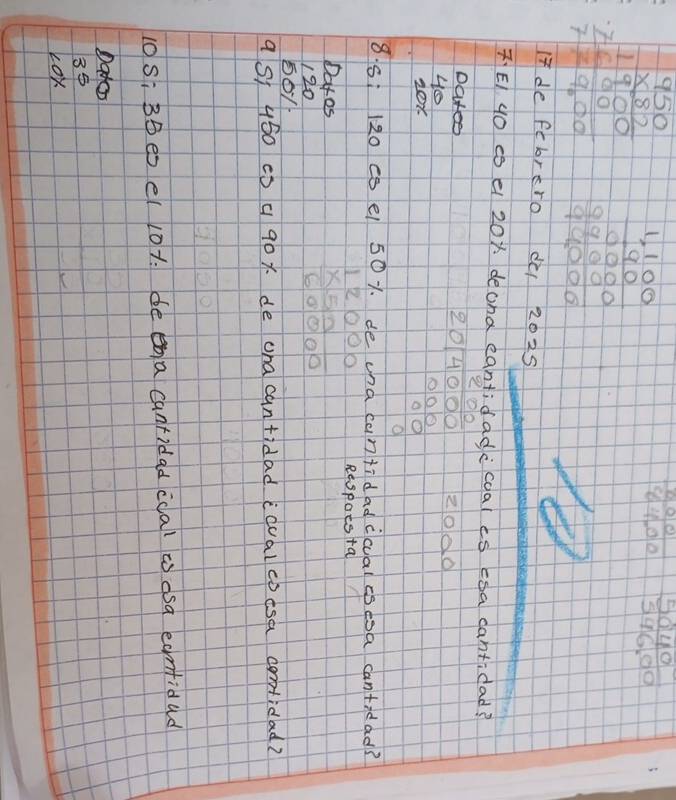 950
x 82
1900
7600
779,00
1,100
90
0000
9900
99,000
800
84,00
5040
546,00
17 de febrero del 2025
7. El 40 es el 20% de una cantidad ¿cual es esa cantidad?
Datos
40
20%
200
20 4000
000
00
0
2000
8. Si 120 es el 50% de una cantidad ¿cual es esa cantidad?
Datos
120
50%
12000
x 50
60000
Respuesta
9 Si 450 es el 90% de una cantidad ¿cual es esa cantidad?
9000
10 Si 35 es el 10% de una cantidad ¿cual es esa cantidad
Datos
35
10%